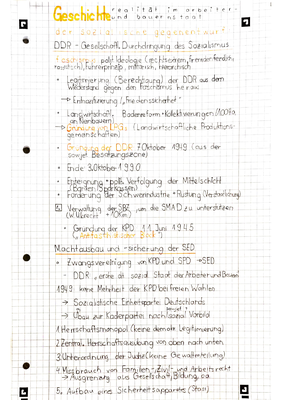 Geschichte realität im arbeiter-
und bauernstaat
der soziale gegenentwurf
DDR - Gesellschaft, Durchdringung des Sozialismus
Faschismus: polit. Ideologie (rechtsextrem, fremdenfeindlich,
rassistisch, führerprinzip, militärisch, hierarchisch
• Legitimierung (Berechtigung) der DDR aus dem
Widerstand gegen den Faschismus heraus
→ Enthanferung „Friedenssicherheit"
• Landwirtschaft, Bodenreform + Kollektivierungen (100ha
an Kleinbauern)
→ Gründung der LPGs (Landwirtschaftliche Produktions-
gemeinschaften)
• Gründung der DDR 7. Oktober 1949 (aus der
sowjet. Besatzungszone)
• Ende 3. Oktober 1990
• Enteignung + polit. Verfolgung der Mittelschicht
/ Banken (Sparkassen)
• Förderung der Schwerindustrie + Rüstung (Verstaatlichung)
Verwaltung der SBZ, um die SMAD zu unterstützen
(W. Ulbricht + 10km)
• Gründung der KPD 11. Juni 1945
(„Antifaschistischer Block")
Machtausbau und -sicherung der SED
• Zwangsvereinigung von KPD und SPD → SED
- DDR „erste dt. sozial. Staat der Arbeiter und Bauern"
1949: keine Mehrheit der KPD bei freien Wahlen
→ Sozialistische Einheitspartei Deutschlands
→ Umbau zur Kaderpartei nach sozial. Vorbild
1. Herrschaftsmonopol (keine demokr. Legitimierung)
2. Zentral. Herrschaftsausübung von oben nach unten
3. Unterordnung der Judikative (keine Gewaltenteilung)
4. Missbrauch von Familien-, Zivil- und Arbeitsrecht
→ Ausgrenzung aus Gesellschaft, Bildung, ca.
5. Aufbau eine Sicherheitsapparates (Stasi)